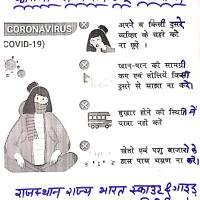 CORONAVIRUS
COVID-19)
अपने व किसी दुसरे
व्यक्ति के चहरे को
ना छुये।
खान-पान की सामग्री
कप एवं तोलिये किसी
दुसरे से साझा ना
बुखार होने की स्थिति में
यात्रा नहीं करें
खेतो एवं पशु बाजारो के
पास ना करें
राजस्थान राज्य भारत स्काउट गाइड